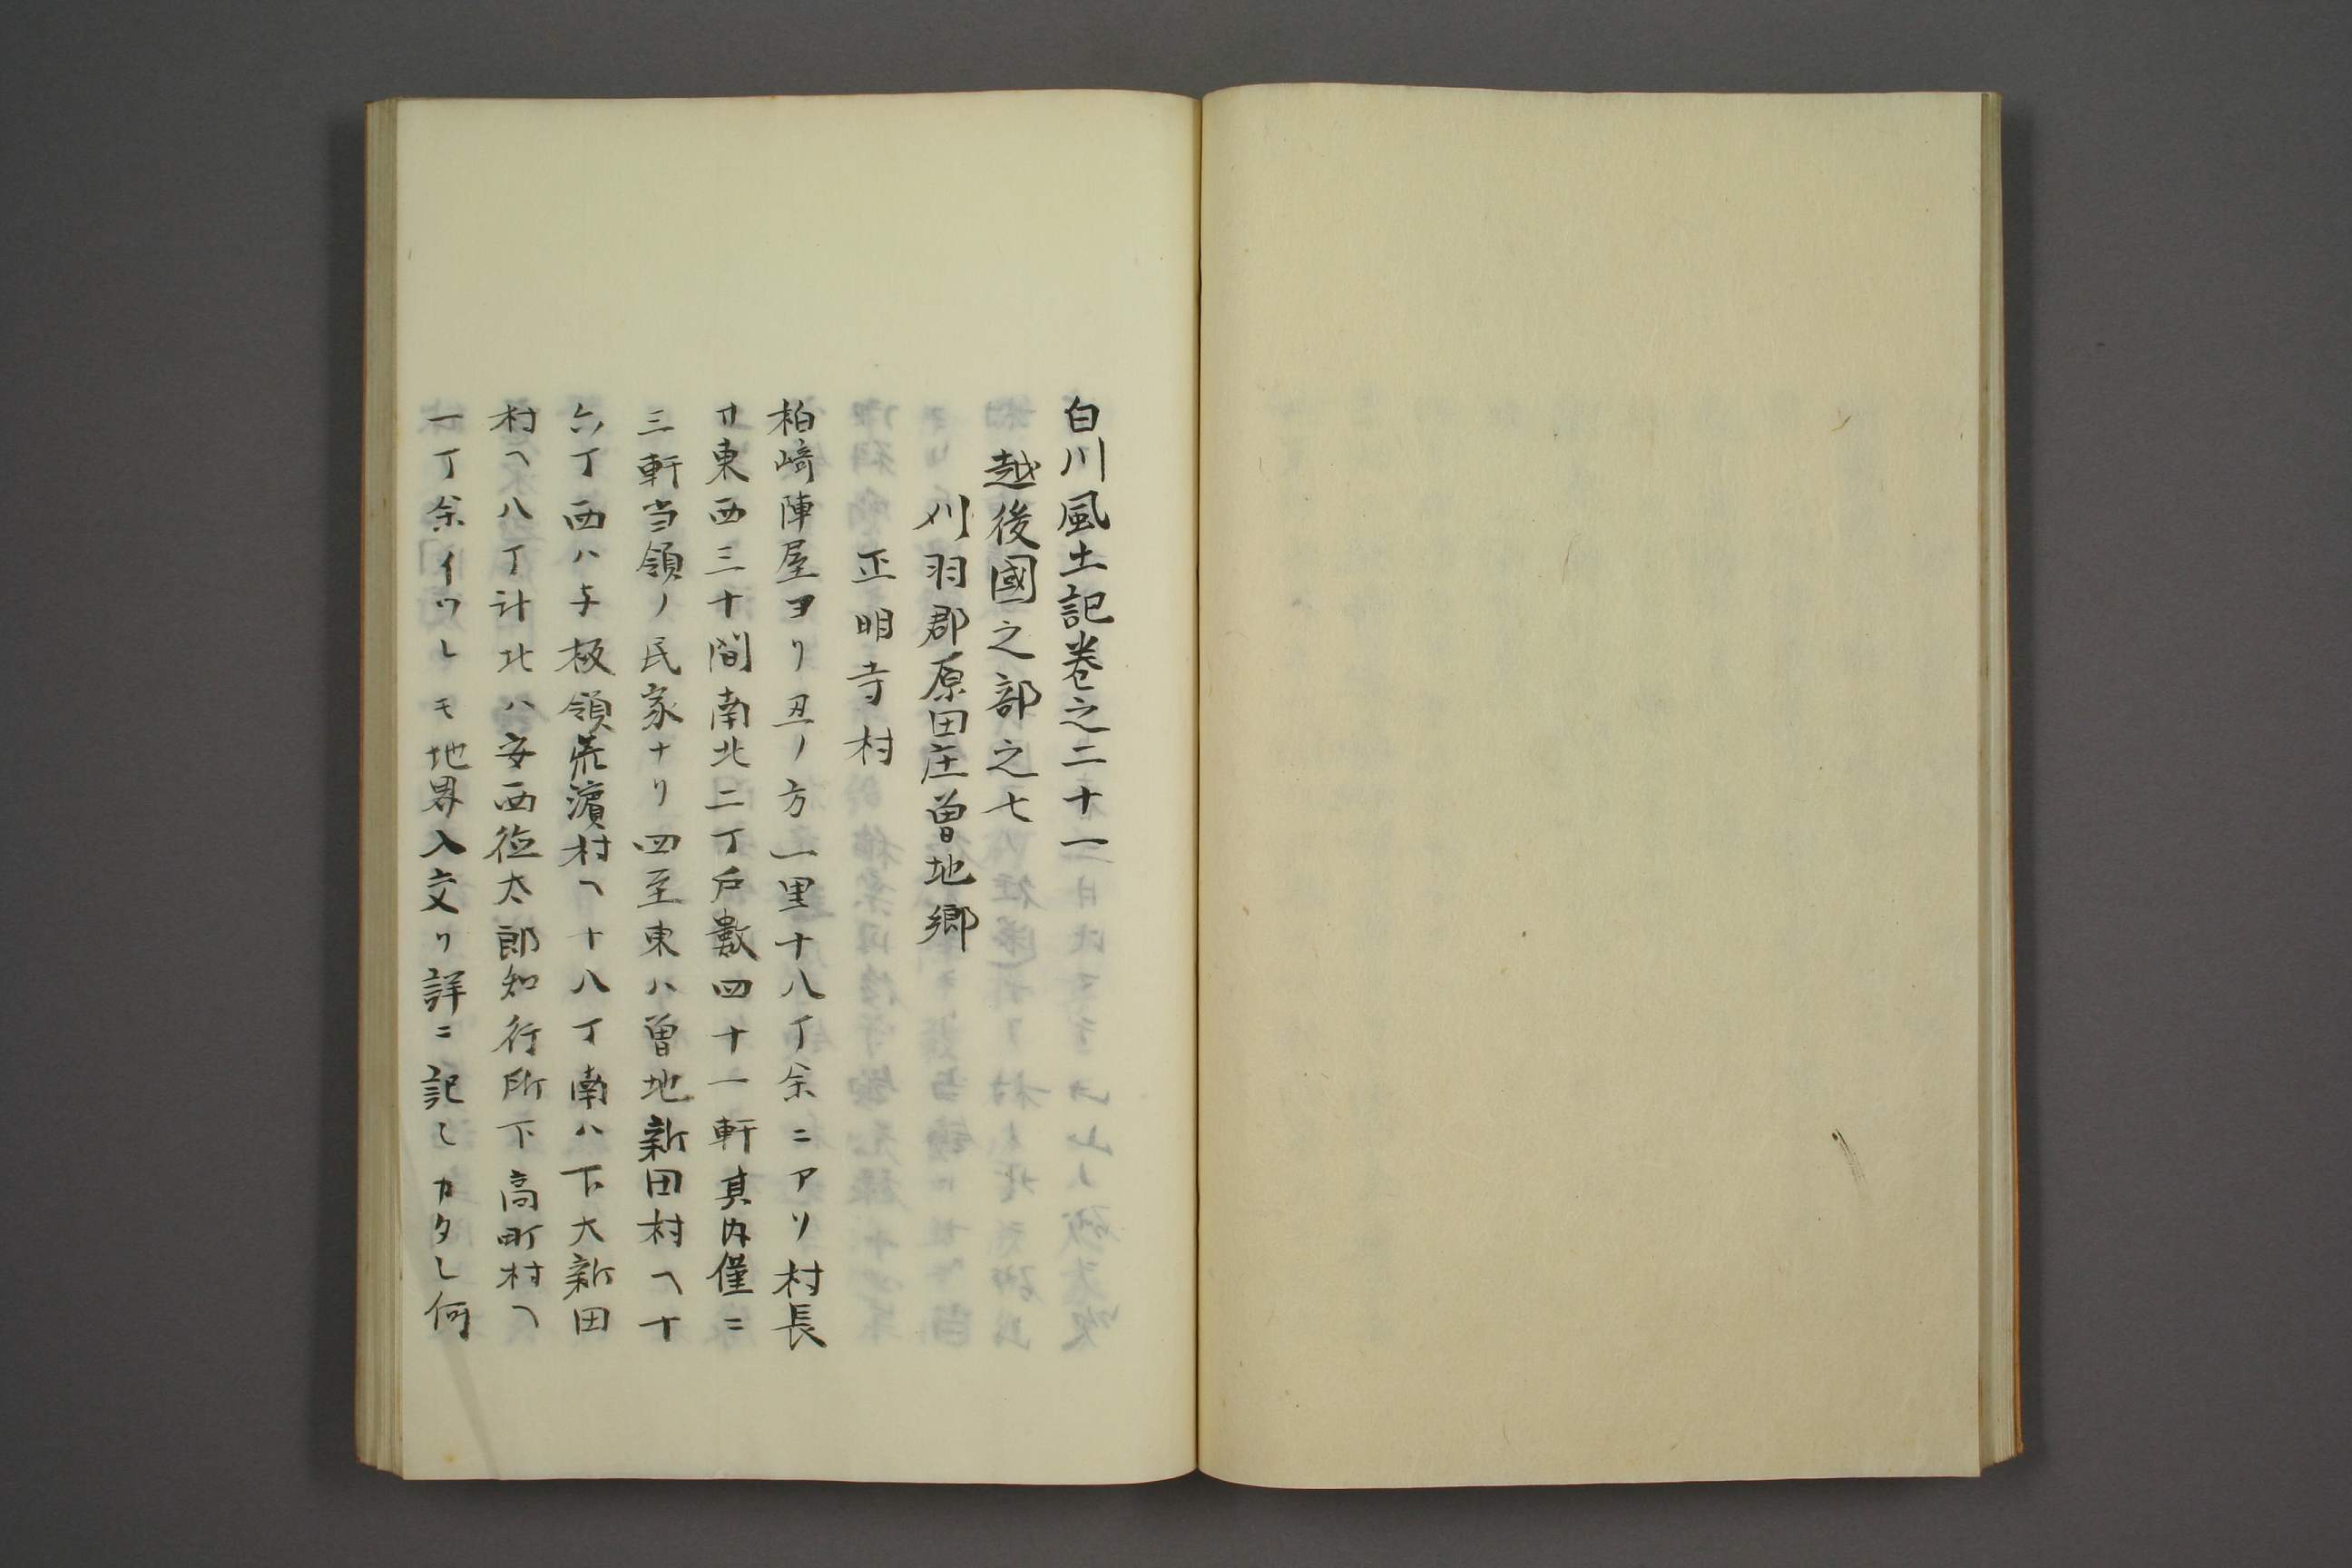 白川風土記巻之二十一
越後國之部之七
刈羽郡原田庄曽地郷
正明寺村
柏﨑陣屋ヨリ丑ノ方一里十八丁余ニアリ村長
サ東西三十間南北二丁戶數四十一軒其内僅ニ
三軒当領ノ民家ナリ四至東ハ曽地新田村ヘ十
六丁西ハ与板領荒濵村ヘ十八丁南ハ下大新田
村ヘ八丁計北ハ安西徳太郎知行所下高町村ヘ
一丁余イツレモ地界入交リ詳ニ記シカタシ何